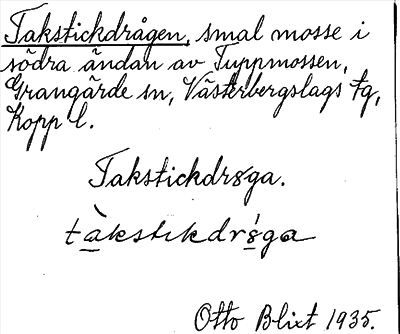 Takstickdrågen, smal mosse i
södra ändan av Tuppmossen,
Grangärde sn, Västerbergslags fq,
Kopp l.
Takstickdr8ga.
tàkstɩkdr8́ga
Otto Blixt 1935.